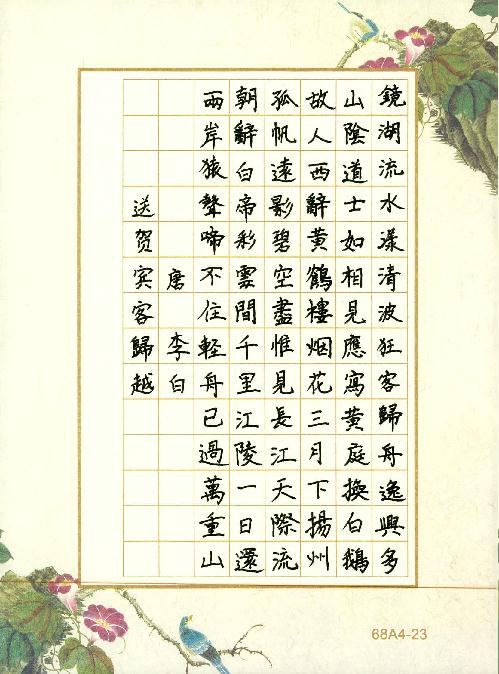 鏡湖流水漾清波狂客歸舟逸興多
山陰道士如相見應寫黃庭換白鵝
故人西辭黃鶴樓烟花三月下揚州
孤帆遠影碧空盡惟見長江天際流
朝辭白帝彩雲間千里江陵一日還
兩岸猿聲啼不住輕舟已過萬重山
唐李白
送贺宾客歸越
68A4-23